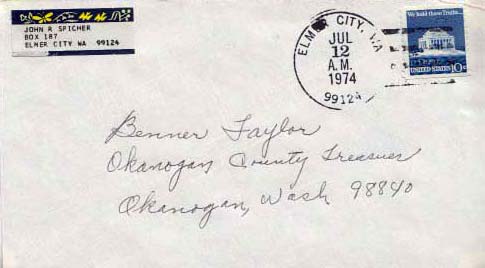 JOHN R SPICHER
BOX 187
ELMER CITY WA 99124
ELMER CITY, WA
JUL
12
A.M.
1974
99124
We hold these Truths...
UNITED STATES 10c
Benner Taylor
Okanogan County Treasurer
Okanogan, Wash 98840